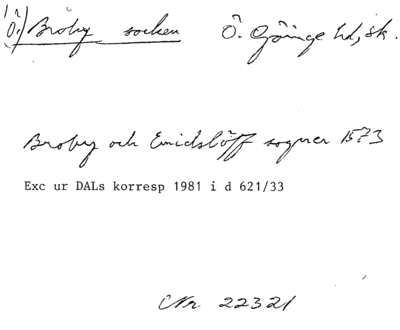 (Ö.) Broby socken Ö. Göinge hd, Sk.
Broby och Emidslöff sogner 1573
Exc ur DALs korresp 1981 i d 621/33
Nr 22321